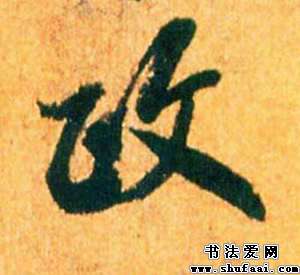 政
书法爱网
www.shufaai.com